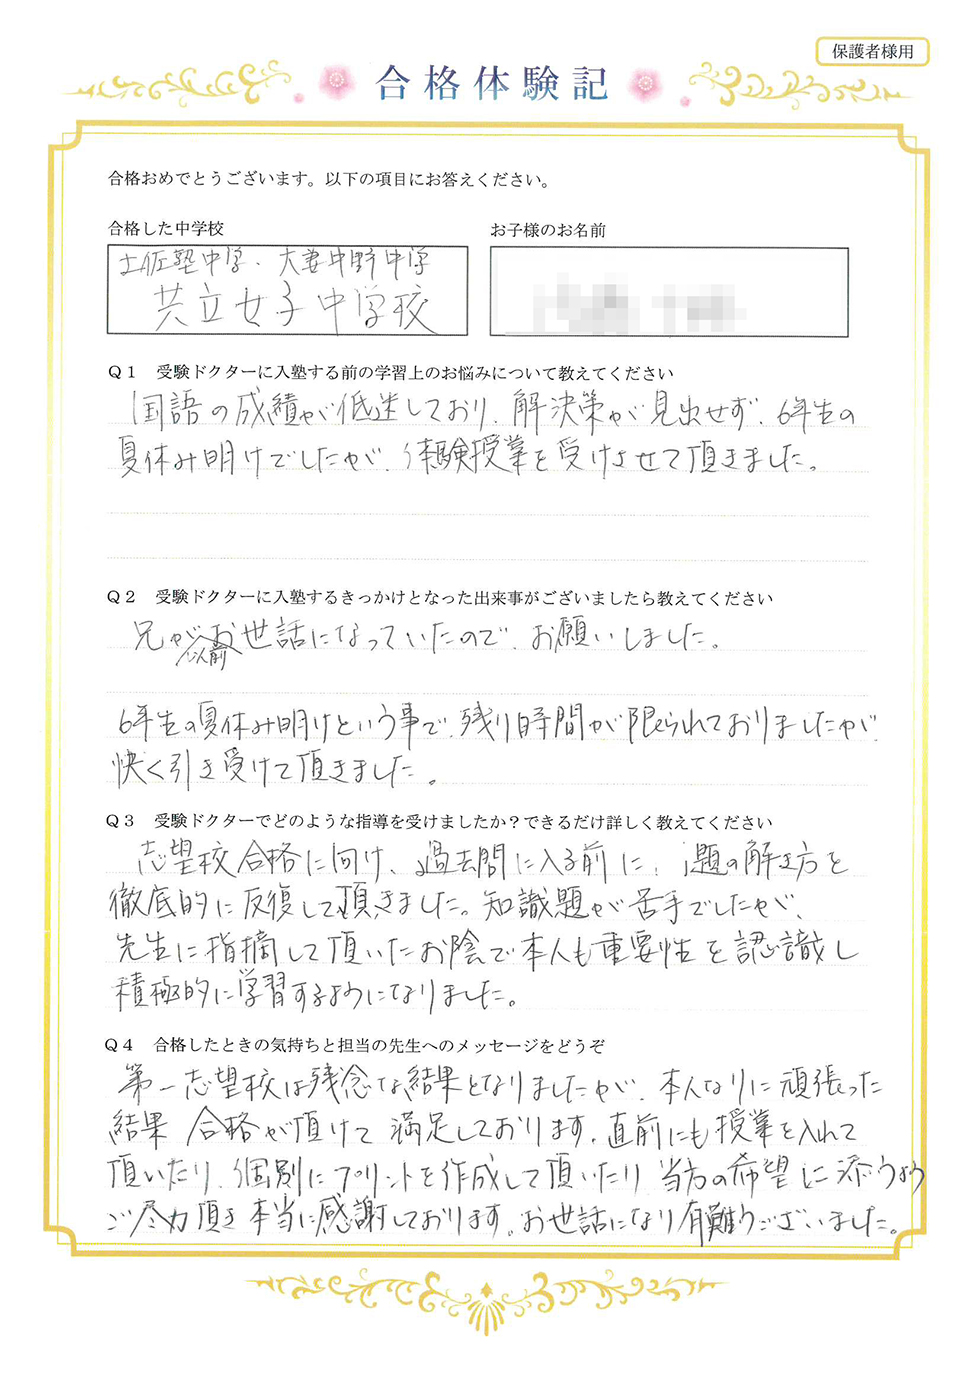 保護者様用
合格体験記
合格おめでとうございます。以下の項目にお答えください。
合格した中学校
お子様のお名前
土佐塾中学、大妻中野中学
共立女子中学校
Q1 受験ドクターに入塾する前の学習上のお悩みについて教えてください
国語の成績が低迷しており、解決策が見出せず、6年生の
夏休み明けでしたが、体験授業を受けさせて頂きました。
Q2 受験ドクターに入塾するきっかけとなった出来事がございましたら教えてください
兄が以前お世話になっていたので、お願いしました。
6年生の夏休み明けという事で、残り時間が限られておりましたが、
快く引き受けて頂きました。
Q3 受験ドクターでどのような指導を受けましたか？できるだけ詳しく教えてください
志望校合格に向け、過去問に入る前に、題の解き方を
徹底的に反復して頂きました。知識題が苦手でしたが、
先生に指摘して頂いたお陰で本人も重要性を認識し
積極的に学習するようになりました。
Q4 合格したときの気持ちと担当の先生へのメッセージをどうぞ
第一志望校は残念な結果となりましたが、本人なりに頑張った
結果 合格が頂けて 満足しております。直前にも授業を入れて
頂いたり、個別にプリントを作成して頂いたり 当方の希望に添うよう
ご尽力頂き 本当に感謝しております。お世話になり有難うございました。